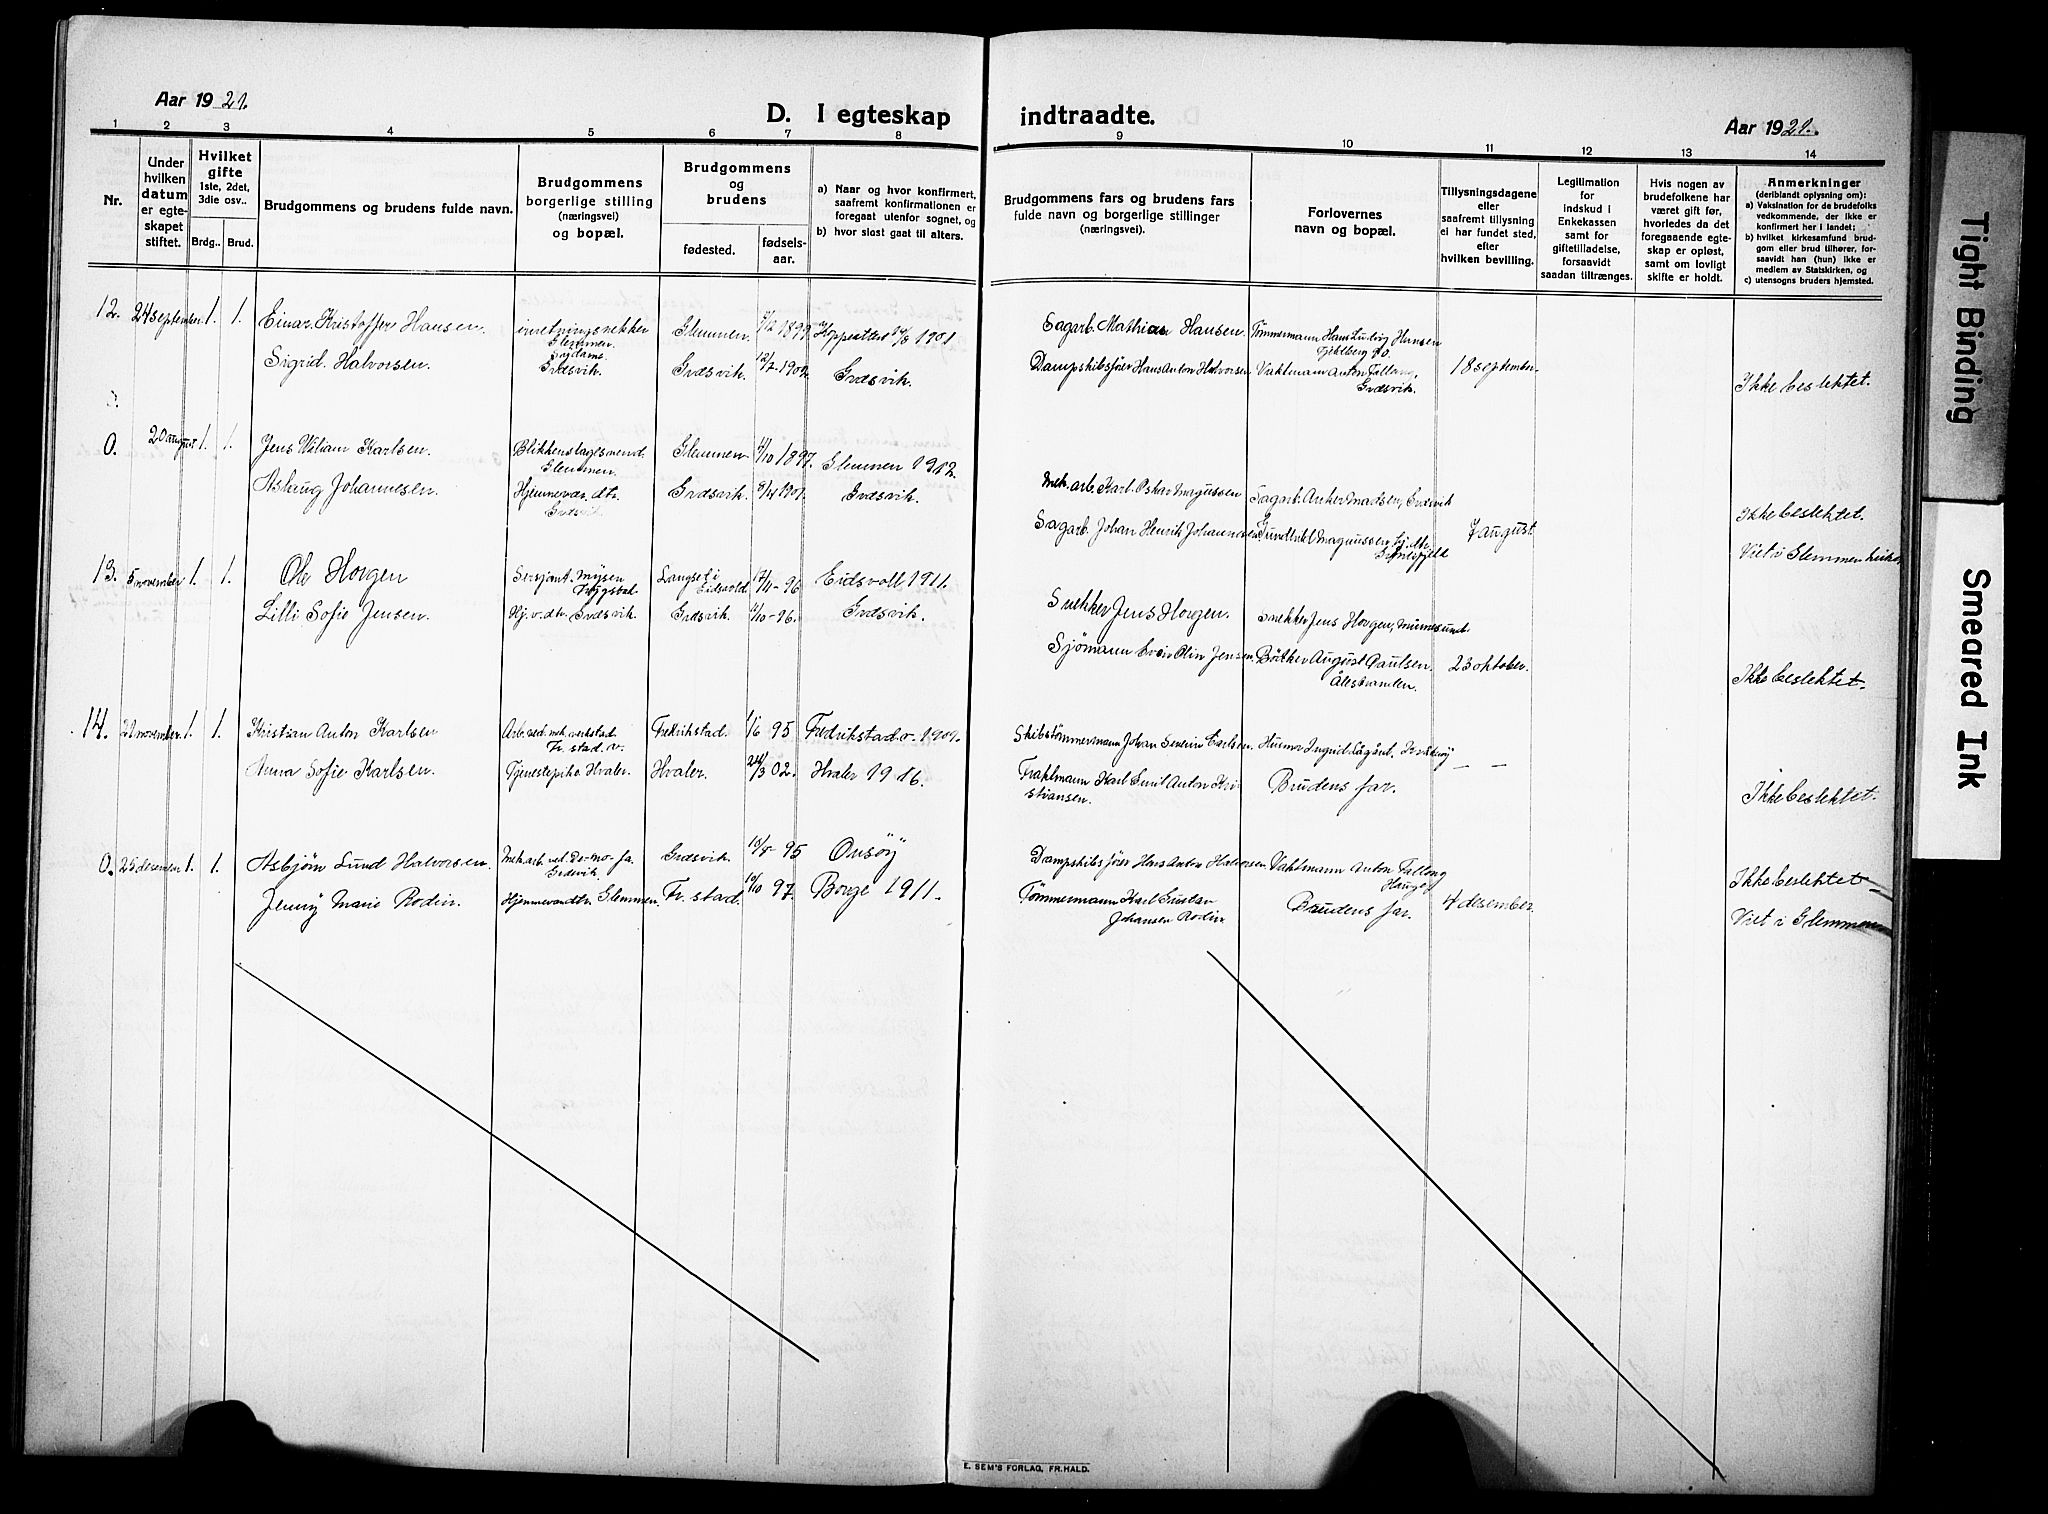 Aar 1921.
D. I egteskap indtraadte.
Aar 1921.
1 2 3 4 5 6 7 8 9 10 11 12 13 14
Nr.
Under hvilken datum er egte-skapet stiftet.
Hvilket gifte
1ste, 2det, 3die osv..
Brdg.. Brud.
Brudgommens og brudens fulde navn.
Brudgommens borgerlige stilling (næringsvei) og bopæl.
Brudgommens og brudens
fødested.
fødsels-aar.
a) Naar og hvor konfirmert, saafremt konfirmationen er foregaat utenfor sognet, og
b) hvor sidst gaat til alters.
Brudgommens fars og brudens fars fulde navn og borgerlige stillinger (næringsvei).
Forlovernes navn og bopæl.
Tillysningsdagene eller saafremt tillysning ei har fundet sted, efter hvilken bevilling.
Legitimation for indskud i Enkekassen samt for giftetilladelse, forsaavidt saadan tiltrænges.
Hvis nogen av brudefolkene har været gift før, hvorledes da det foregaaende egte-skap er opløst, samt om lovligt skifte er holdt.
Anmerkninger
(deriblandt oplysning om):
a) Vaksination for de brudefolks vedkommende, der ikke er konfirmert her i landet;
b) hvilket kirkesamfund brud-gom eller brud tilhører, for-saavidt han (hun) ikke er medlem av Statskirken, og
c) utensogns bruders hjemsted.
12. 24 september. 1. 1. Einar Kristoffer Hansen. Glemmen. Glemmen. Sagarb. Mathias Hansen. Tømmermann Hans Ludvig Hansen
Sigrid Halvorsen. Grdsvik. Grdsvik. 12/7-1902 Grdsvik. Dampskibsfører Hans Anton Halvorsen Vaktmann Anton Grdsvik. 18 september. Ikke beslektet.
0. 20 august 1. 1. Jens Wiliam Karlsen. Glemmen. Glemmen. 1897. Glemmen 1912. Mek. arb. Karl Oskar Magussen Sagarb. Anker Madsen, Grdsvik
Aslaug Johannesen. Hjemmevær. dtr. Grdsvik. Grdsvik. 1901. Grdsvik. Sagarb. Johan Henrik Johannesen 7 august Ikke beslektet.
Viet i Glemmen
13. 5 november 1. 1. Ole Horgen Sersjant. Mysen Langset i Eidsvold 96 Eidsvoll, 1911. Snekker Jens Horgen. Snekker Jens Horgen, Minnesund.
Lilli Sofie Jensen. Hj. v. dtr. Grdsvik. Grdsvik. 96. Grdsvik. Sjømann Jensen. Bødker August Paulsen. Ålestranden. 23 oktober. Ikke beslektet.
14. 22 november. 1. 1. Kristian Anton Karlsen Arb. ved mek. verkstad. Fr. stad. v. Fredrikstad. 1/6 95 Fredrikstad. v. 1909. Skibstømmermann Johan Severin Karlsen. Ingrid
Anna Sofie Karlsen. Tjenestepike Hvaler. Hvaler. 24/3 02. Hvaler 1916. Karl Emil Anton Kri-stiansen. Brudens far. — — Ikke beslektet.
0. 25 desember 1. 1. Asbjørn Lund Halvorsen. Mek. arb. ved De-no-fa. Grdsvik. Grdsvik. 95 Onsøy Dampskibsfører Hans Anton Halvorsen. Vaktmann Anton Ikke beslektet
Jenny Marie Rodin. Glemmen. Fr. stad. 97. Borge 1911. Tømmermann Karl Gustav Johansen Rodin. Brudens far. 4 desember. Viet i Glemmen
E. SEM'S FORLAG, FR.HALD.
Tight Binding
Smeared Ink